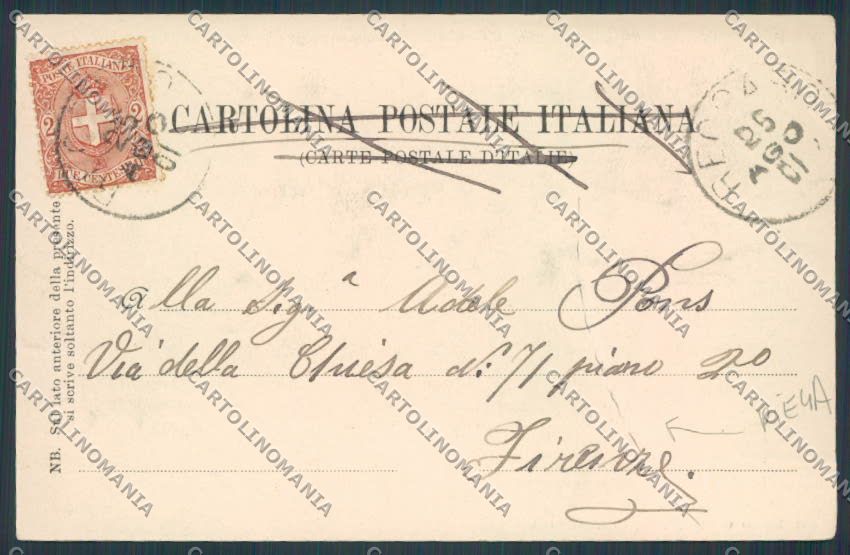 POSTE ITALIANE
2 2
DUE CENTESIMI
CARTOLINA POSTALE ITALIANA
(CARTE POSTALE D'ITALIE)
26
AGO
01
NB. Sul lato anteriore della presente
si scrive soltanto l'indirizzo.
Alla Sigª Adele Pons
Via della Chiesa N. 71 piano 2º
Firenze
PIEGA
CARTOLINOMANIA